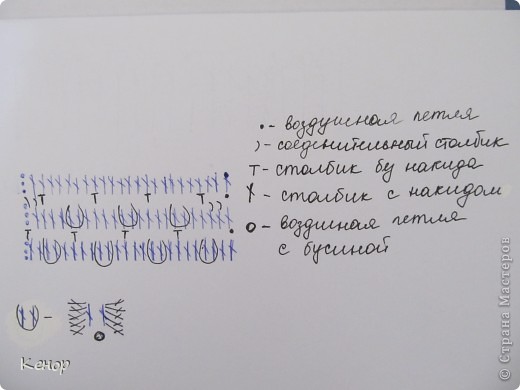 • - воздушная петля
) - соеденительный столбик
T - столбик бу накида
X - столбик с накидом
o - воздушная петля
с бусиной
Кенор
© Страна Мастеров